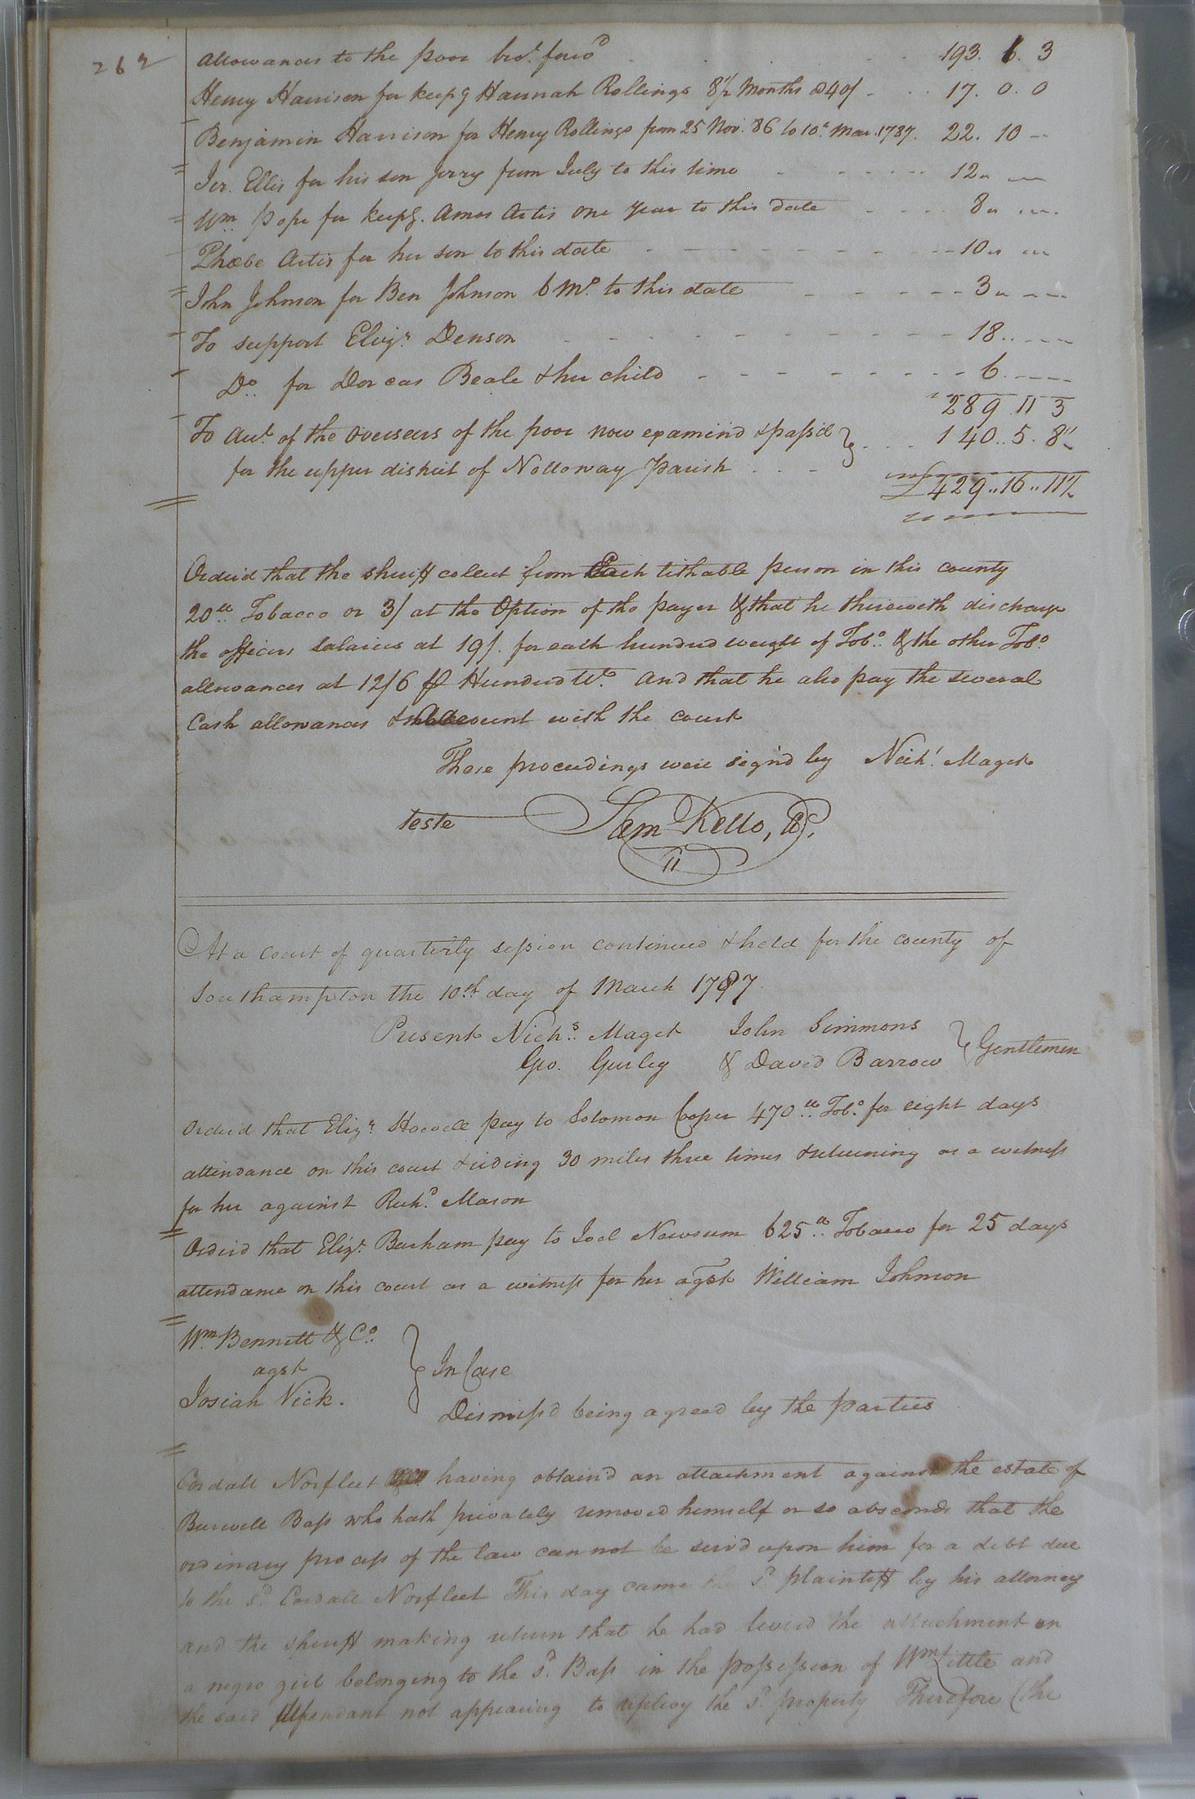 262
Allowances to the poor brot. forwd 193. 6. 3
Henry Harrison for keepg Hannah Rollings 8½ Months @ 40/ 17. 0. 0
Benjamin Harrison for Henry Rollings from 25 Nov. 86 to 10th Mar. 1787. 22. 10 --
Jer. Ellis for his son Jerry from July to this time 12 --
Wm. Pope for keepg. Amos Artis one year to this date 8 --
Phœbe Artis for her son to this date 10 --
John Johnson for Ben Johnson 6 Mo. to this date 3 --
To support Elizr. Denson 18 --
Do. for Dorcas Beale & her child 6 --
289. 11 3
To Act. of the overseers of the poor now examin'd & pass'd } 140.. 5. 8½
for the upper district of Nottoway Parish
£429..16..11½
Orderd that the sheriff colect from Each tithable person in this county
20lb. Tobacco or 3/ at the Option of the payer & that he therewith discharge
the officers salaries at 19/. for each hundred weight of Tobo. & the other Tobo.
allowances at 12/6 ⅌ Hundred Wt. And that he also pay the several
Cash allowances & account with the court
These proceedings were sign'd by Nichs. Maget
Teste Sam Kello, CC.
At a court of quarterly session continued & held for the county of
Southampton the 10th day of March 1787.
Present Nichs. Maget John Simmons } Gentlemen
Geo. Gurley & David Barrow
Orderd that Elizr. Howell pay to Solomon Cooper 470lb. Tobo. for eight days
attendance on this court & riding 30 miles three times & returning as a witness
for her against Richd. Mason
Orderd that Elizr. Barham pay to Joel Newsum 625lb. Tobacco for 25 days
attendance on this court as a witness for her agst William Johnson
Wm. Bennett & Co. } In Case
agst
Josiah Vick. Dismiss'd being agreed by the parties
Cordall Norfleet having obtain'd an attachment against the estate of
Burwell Bass who hath privately removed himself or so absconds that the
ordinary process of the law can not be serv'd upon him for a debt due
to the sd. Cordall Norfleet This day came the sd. plaintiff by his attorney
and the sheriff making return that he had levied the attachment on
a negro girl belonging to the sd. Bass in the possession of Wm. Little and
the said Defendant not appearing to replevy the sd. property Therefore (the